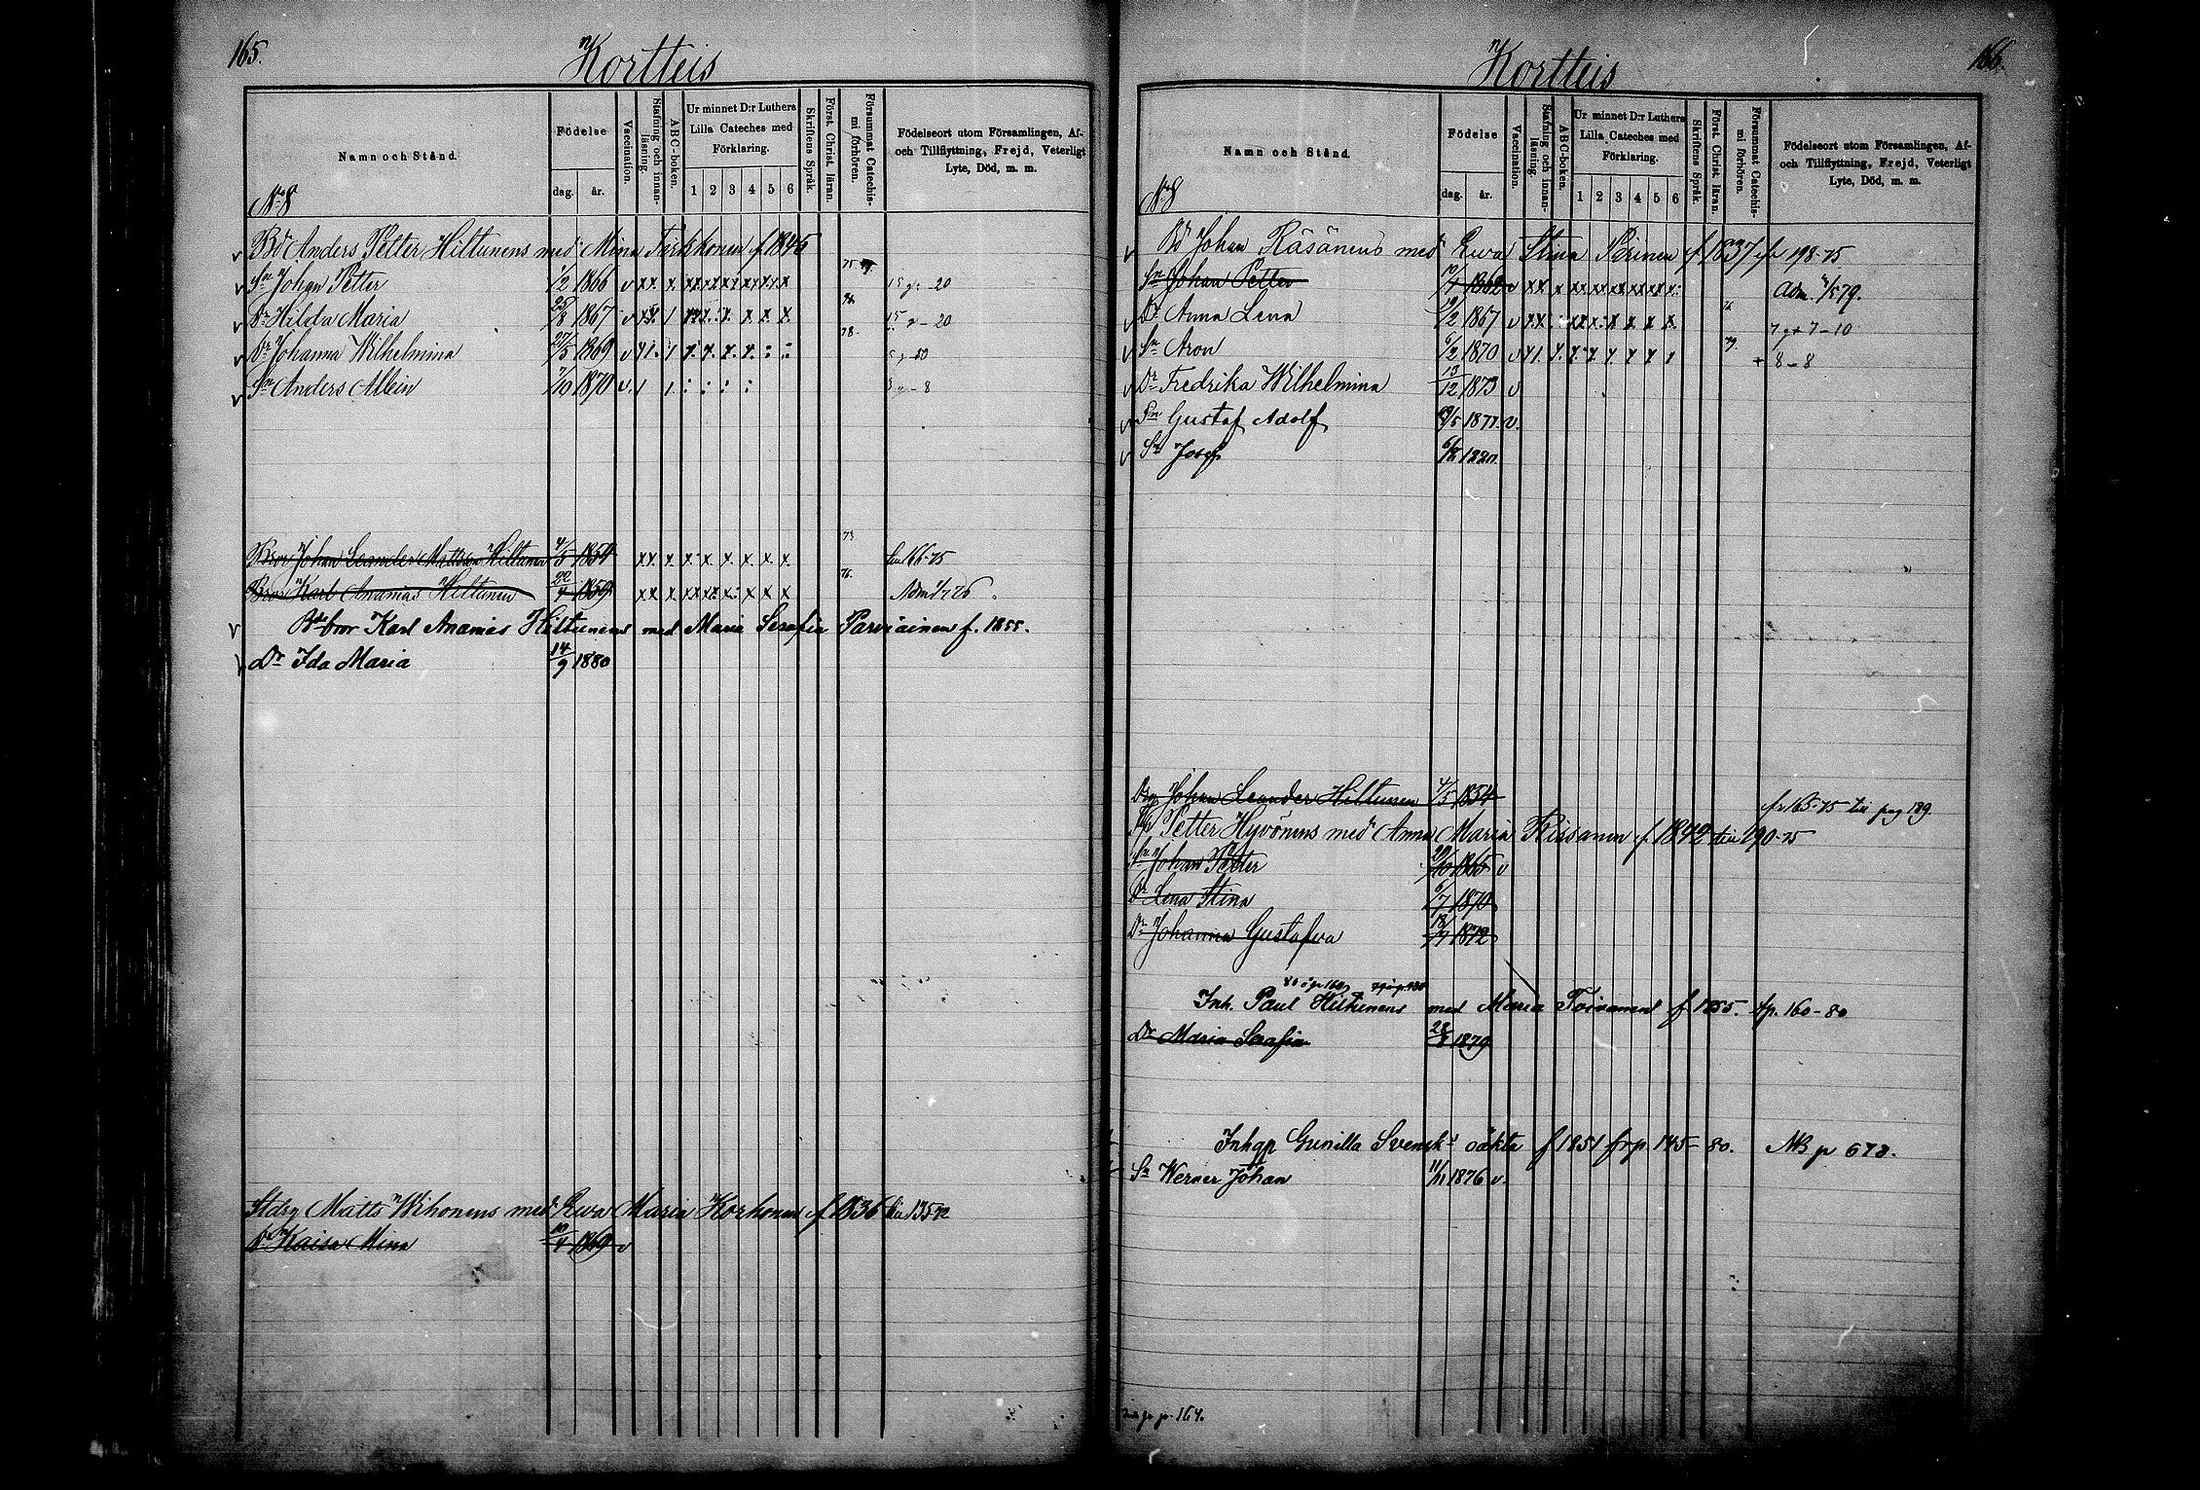 165.
Kortteis
Namn och Stånd.
Födelse
dag.
år.
Vaccination.
Stafning och innanläsning.
ABC-boken.
Ur minnet D:r Luthers Lilla Cateches med Förklaring.
1 2 3 4 5 6
Skriftens Språk.
Först. Christ. läran.
Försummat Catechismi förhören.
Födelseort utom Församlingen, Af- och Tillflyttning, Frejd, Veterligt Lyte, Död, m. m.
No 8
Bd Anders Petter Hiltunens med Mina Turkkonen f 1845
Sn Johan Petter 1/2 1866 v 75 15 g - 20
Dr Hilda Maria 25/8 1867 v 15 g - 20
Dr Johanna Wilhelmina 27/5 1869 v 78.
Sn Anders Albin 7/10 1870 v. - 8
Bror Johan Leander Mattsson Hiltunen 4/5 1854 73 166-75
Bror Karl Ananias Hiltunen 22/7 1859 76.
Bdebror Karl Ananias Hiltunens med Maria Serafia Parviainen f. 1855.
Dr Ida Maria 14/9 1880
Stdrg Matts Wihonens med Ewa Maria Korhonen f 1836 till 135-72
Dr Kaisa Mina 10/4 1869 v
166.
Kortteis
Namn och Stånd.
Födelse
dag.
år.
Vaccination.
Stafning och innanläsning.
ABC-boken.
Ur minnet D:r Luthers Lilla Cateches med Förklaring.
1 2 3 4 5 6
Skriftens Språk.
Först. Christ. läran.
Försummat Catechismi förhören.
Födelseort utom Församlingen, Af- och Tillflyttning, Frejd, Veterligt Lyte, Död, m. m.
No 8
Bd Johan Räsänens med Ewa Stina Pärinen f 1837 fr 198-75
Sn Johan Petter 10/7 1862 v Adm. 79.
Dr Anna Lena 19/2 1867 v 7 g + 7 - 10
Sn Aron 6/2 1870 v 79. + 8 - 8
Dr Fredrika Wilhelmina 13/12 1873 v
Sn Gustaf Adolf 19/5 1877. v.
Sn Josef 1880.
Drg Johan Leander Hiltunen 4/5 1854 fr 165-75 till pag 189
Petter Hyvönens med Anna Maria Kissanen f. 1842 till 190-75
Sn Johan Petter 29/10 1865 v
Dr Lena Stina 6/7 1870
Dr Johanna Gustafva 18/7 1872
Inh. Paul Hiltunens med Maria Toivanen f 1855. tp. 160-80
Dr Maria Serafia 1879
Inhqp Gunilla Svensk oäkta f 1851 frp. 145-80. NB p 678.
Sn Werner Johan 11/11 1876 v.
p. 164.